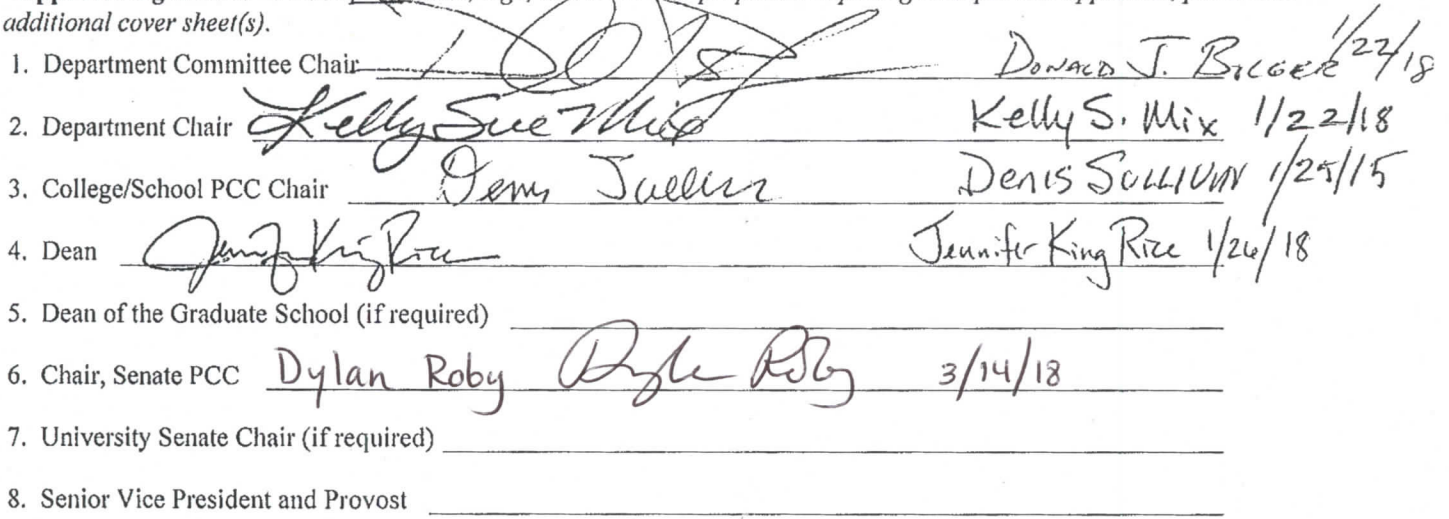 additional cover sheet(s).
1. Department Committee Chair DONALD J. BOLGER 1/22/18
2. Department Chair Kelly Sue Mix Kelly S. Mix 1/22/18
3. College/School PCC Chair Denis SULLIVAN 1/25/15
4. Dean Jennifer King Rice Jennifer King Rice 1/26/18
5. Dean of the Graduate School (if required)
6. Chair, Senate PCC Dylan Roby Dylan Roby 3/14/18
7. University Senate Chair (if required)
8. Senior Vice President and Provost